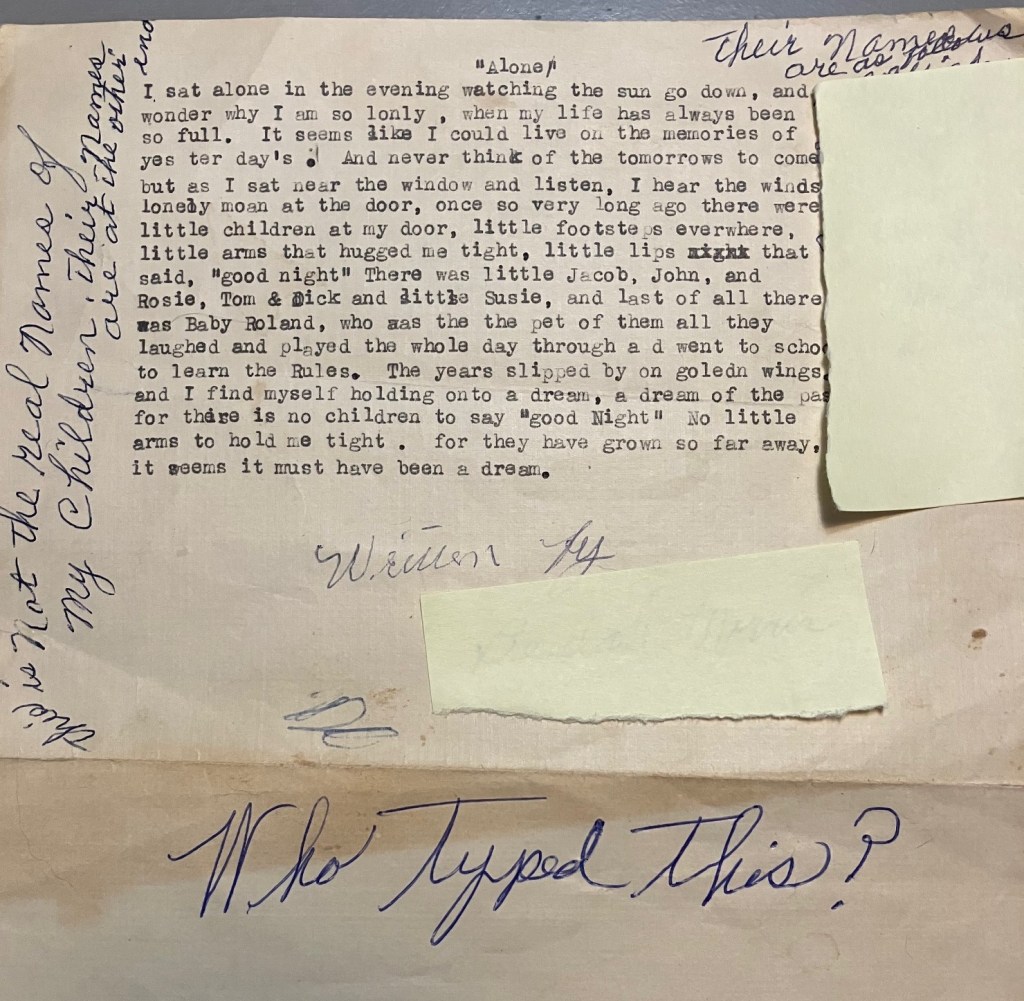 Their Names
are as follows
"Alone"
I sat alone in the evening watching the sun go down, and
wonder why I am so lonly , when my life has always been
so full. It seems like I could live on the memories of
yes ter day's . And never think of the tomorrows to come
but as I sat near the window and listen, I hear the winds
lonely moan at the door, once so very long ago there were
little children at my door, little footsteps everwhere,
little arms that hugged me tight, little lips night that
said, "good night" There was little Jacob, John, and
Rosie, Tom & Dick and little Susie, and last of all there
was Baby Roland, who was the the pet of them all they
laughed and played the whole day through a d went to scho
to learn the Rules. The years slipped by on goledn wings
and I find myself holding onto a dream, a dream of the pas
for there is no children to say "good Night" No little
arms to hold me tight . for they have grown so far away,
it seems it must have been a dream.
Written by
Who typed this?
this is Not the real Names of
My Children. Their Names
are at the other
end